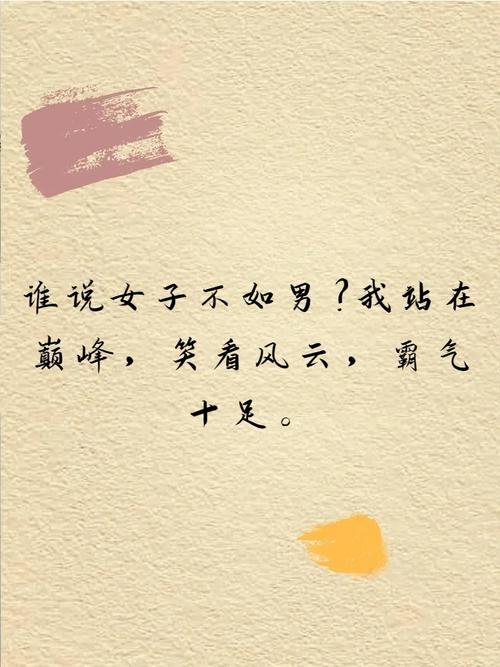 谁说女子不如男？我站在
巅峰，笑看风云，霸气
十足。